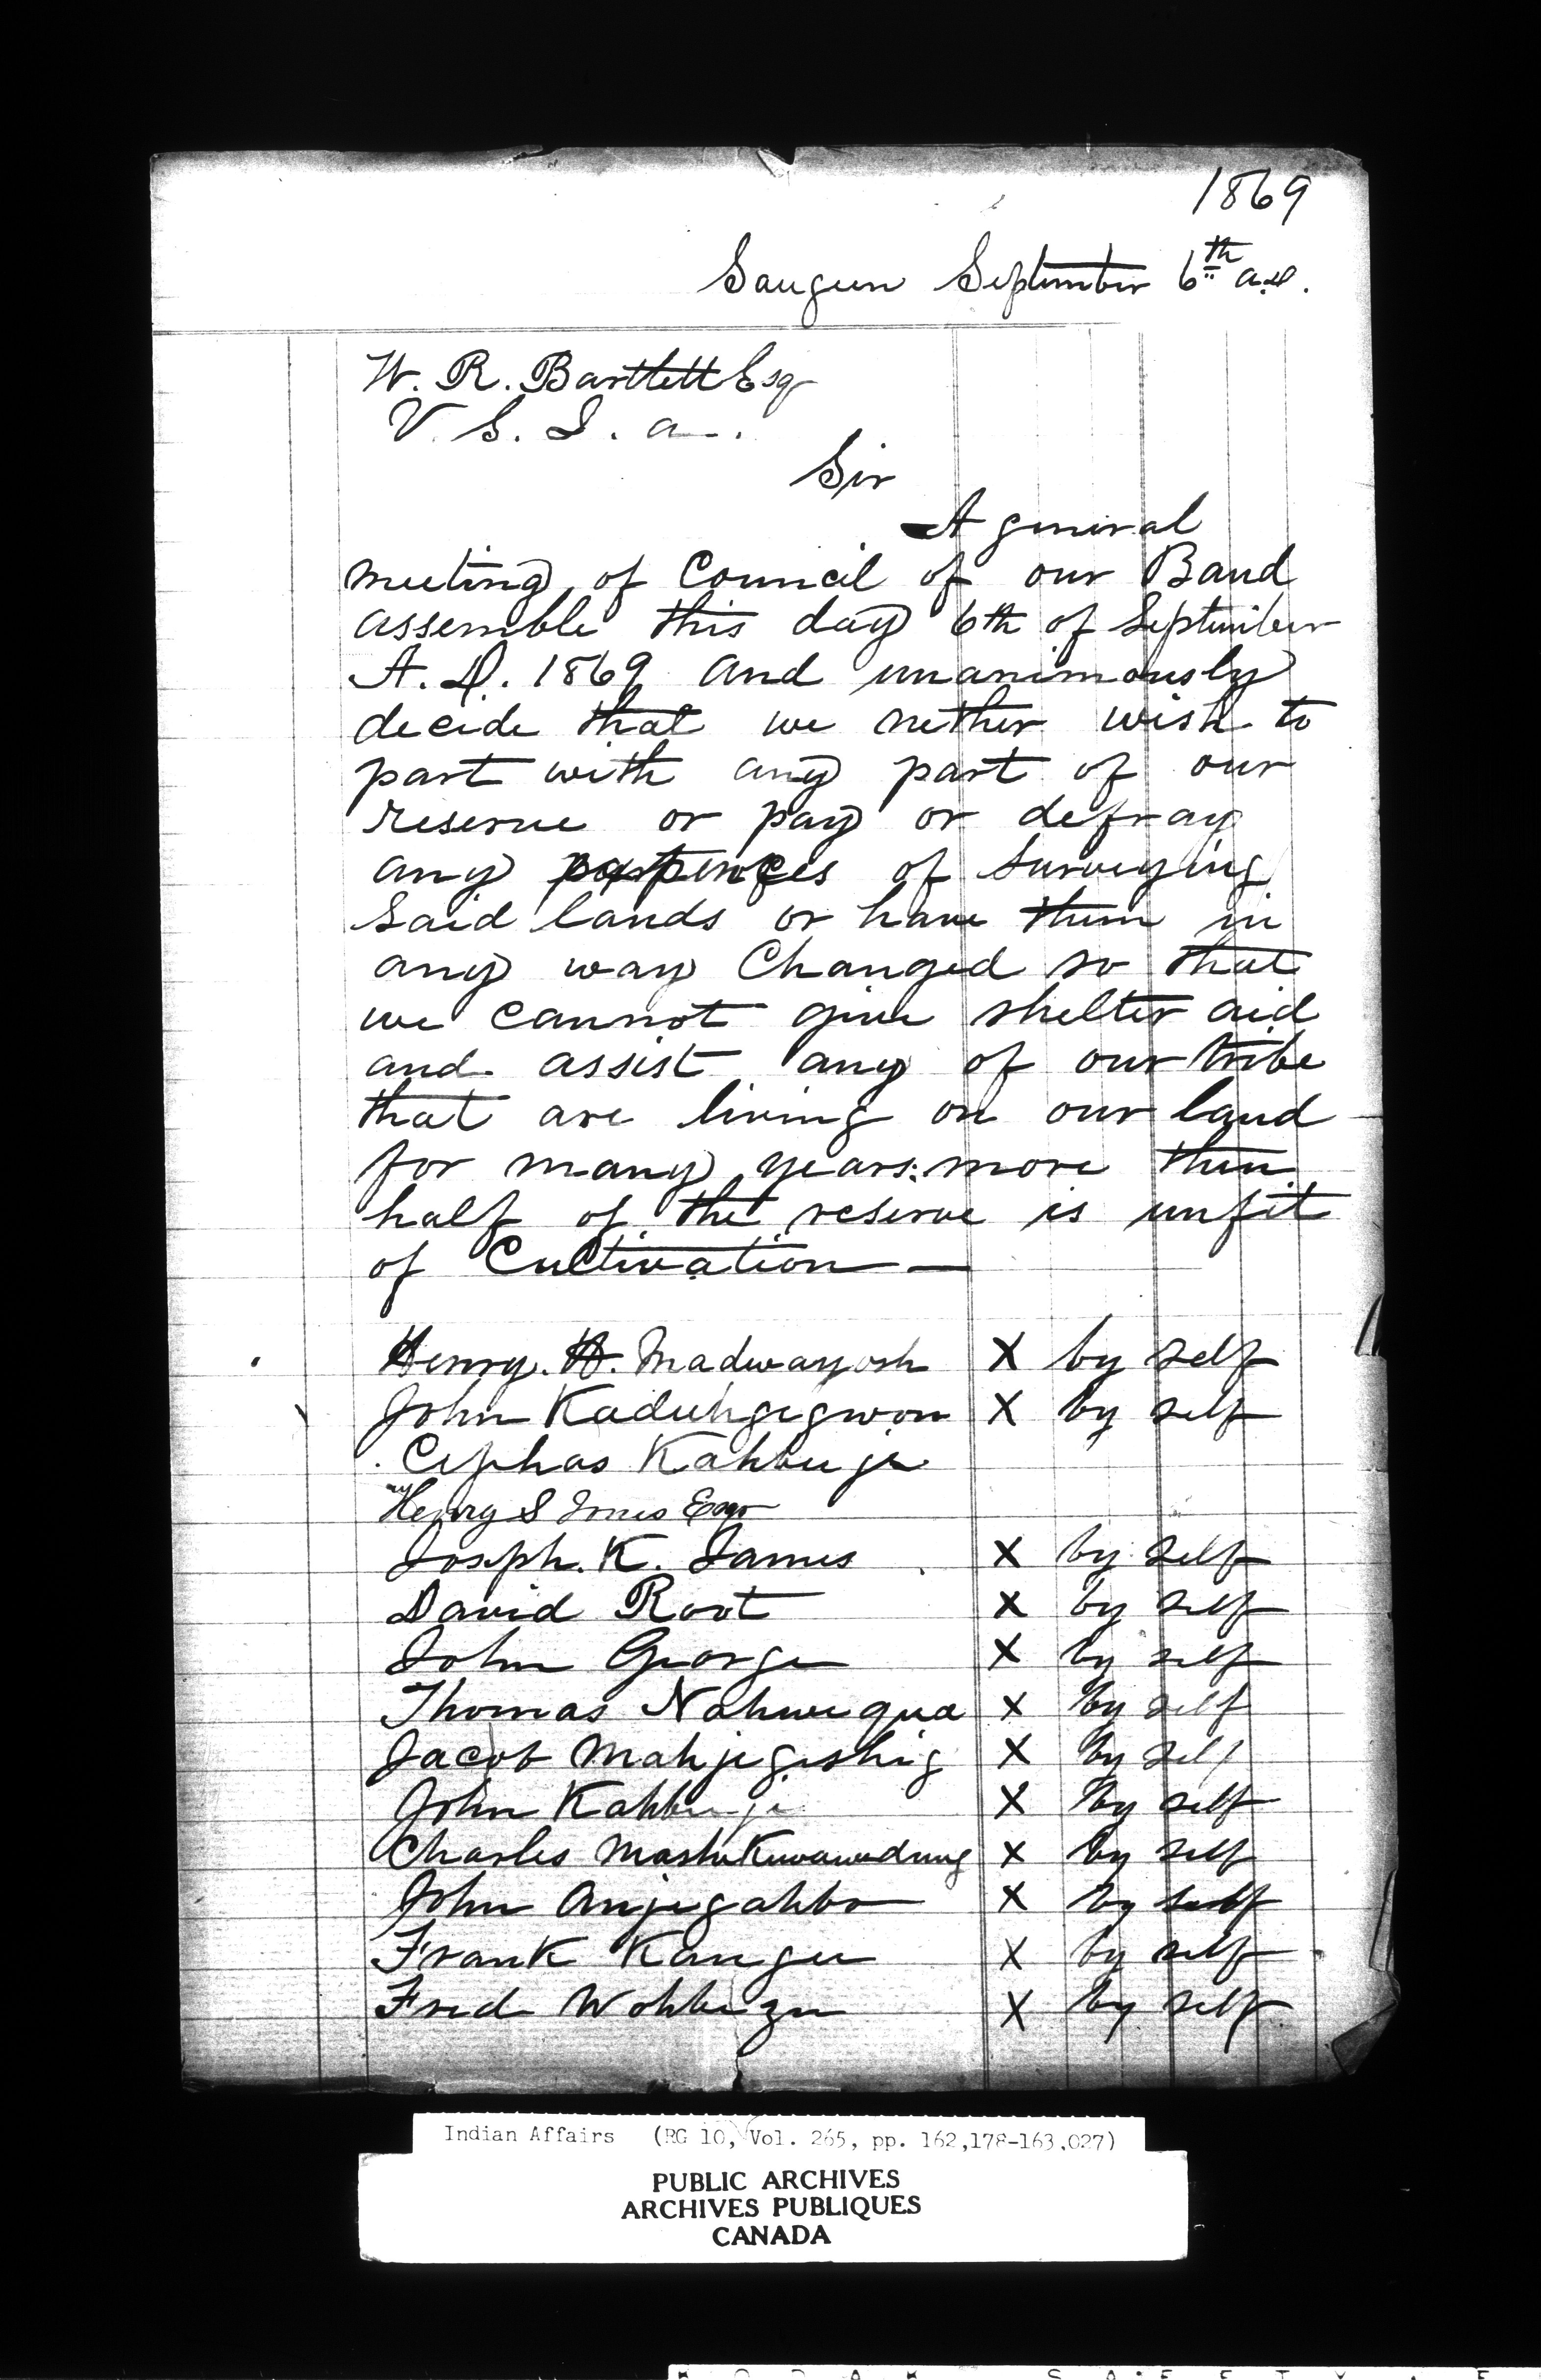 1869
Saugeen September 6th A.D.
W. R. Bartlett Esq
V. S. I. a.
Sir
A general
meeting of Council of our Band
assemble this day 6th of September
A.D. 1869 and unanimously
decide that we nether wish to
part with any part of our
reserve or pay or defray
any of Surveying
Said lands or have them in
any way Changed so that
we cannot give shelter aid
and assist any of our tribe
that are living on our land
for many years: more then
half of the reserve is unfit
of Cultivation —
Henry. H. Madwayosh X by self
John Kaduhgegwon X by self
Cephas Kahbeeje
Henry S Jones Esqr
Joseph. K. James X by self
David Root X by self
John George X by self
Thomas Nahwegua X by self
Jacob Mahjegeshig X by self
John Kahbeeje X by self
Charles X by self
John Anjegahbo X by self
Frank Kangee X by self
Fred X by self
Indian Affairs (RG 10, Vol. 265, pp. 162,178-163,027)
PUBLIC ARCHIVES
ARCHIVES PUBLIQUES
CANADA